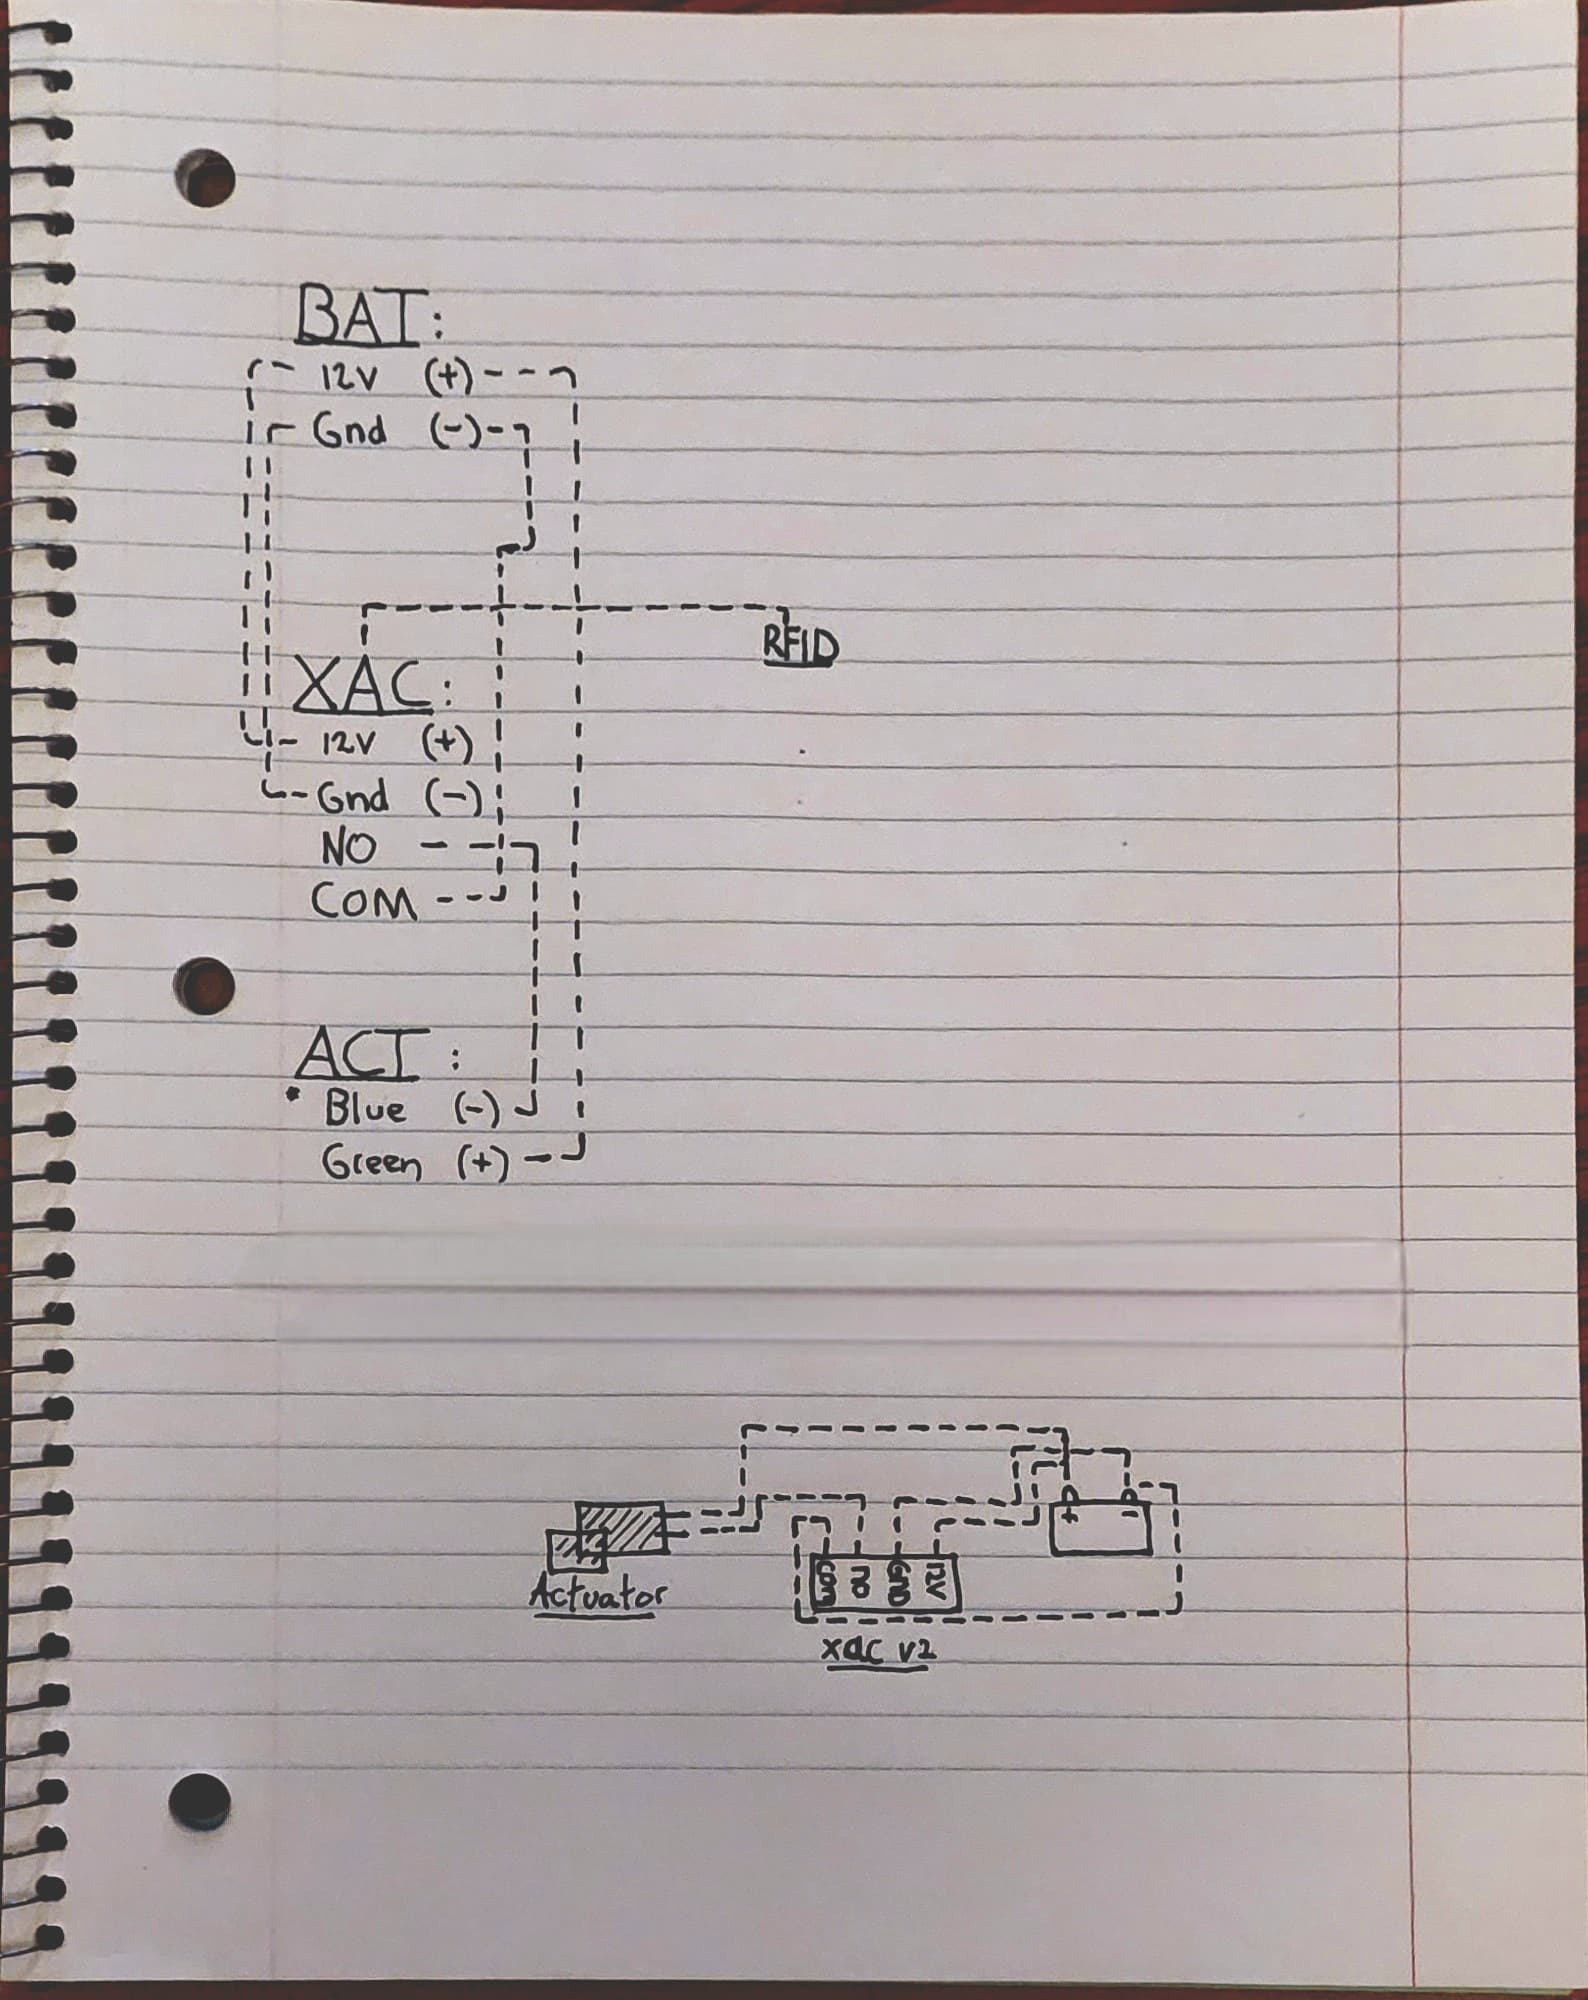 BAT:
12V (+)
Gnd (-)
RFID
XAC:
12V (+)
Gnd (-)
NO
COM
ACT:
* Blue (-)
Green (+)
+ -
COM NO GND 12V
Actuator
xac v2